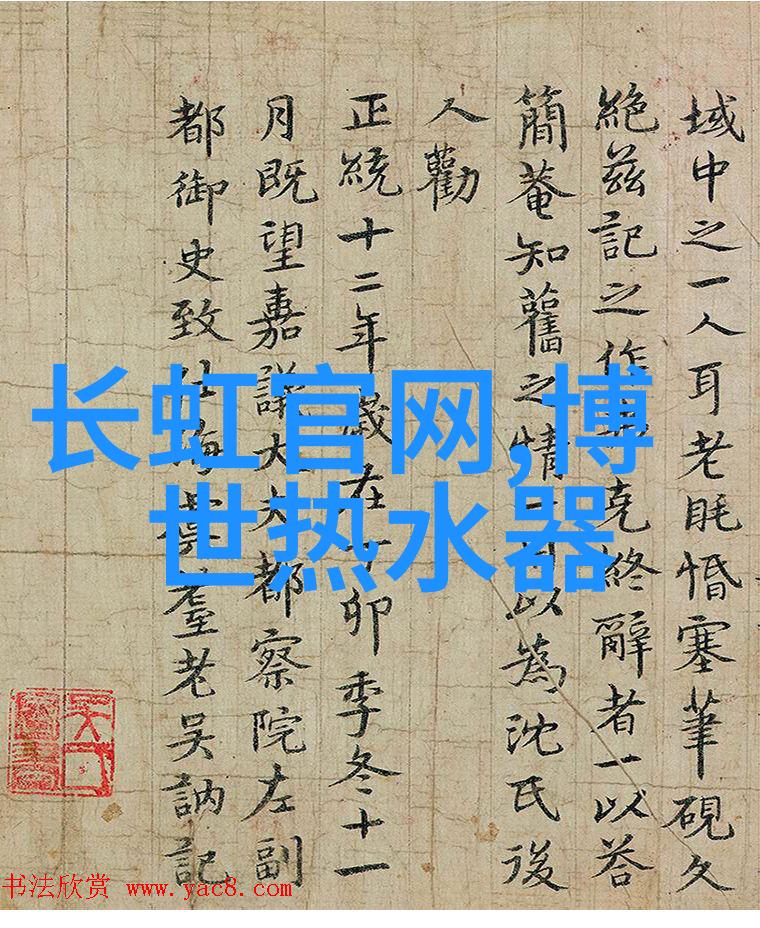 域中之一人耳老眊惛塞筆硯久
絶茲記之作克終辭者一以荅
簡菴知舊之情以為沈氏後
人勸
正統十二年歲在丁卯季冬十一
月既望嘉議大夫都察院左副
都御史致仕海虞耋老吳訥記
长虹官网,博
世热水器
书法欣赏 www.yac8.com